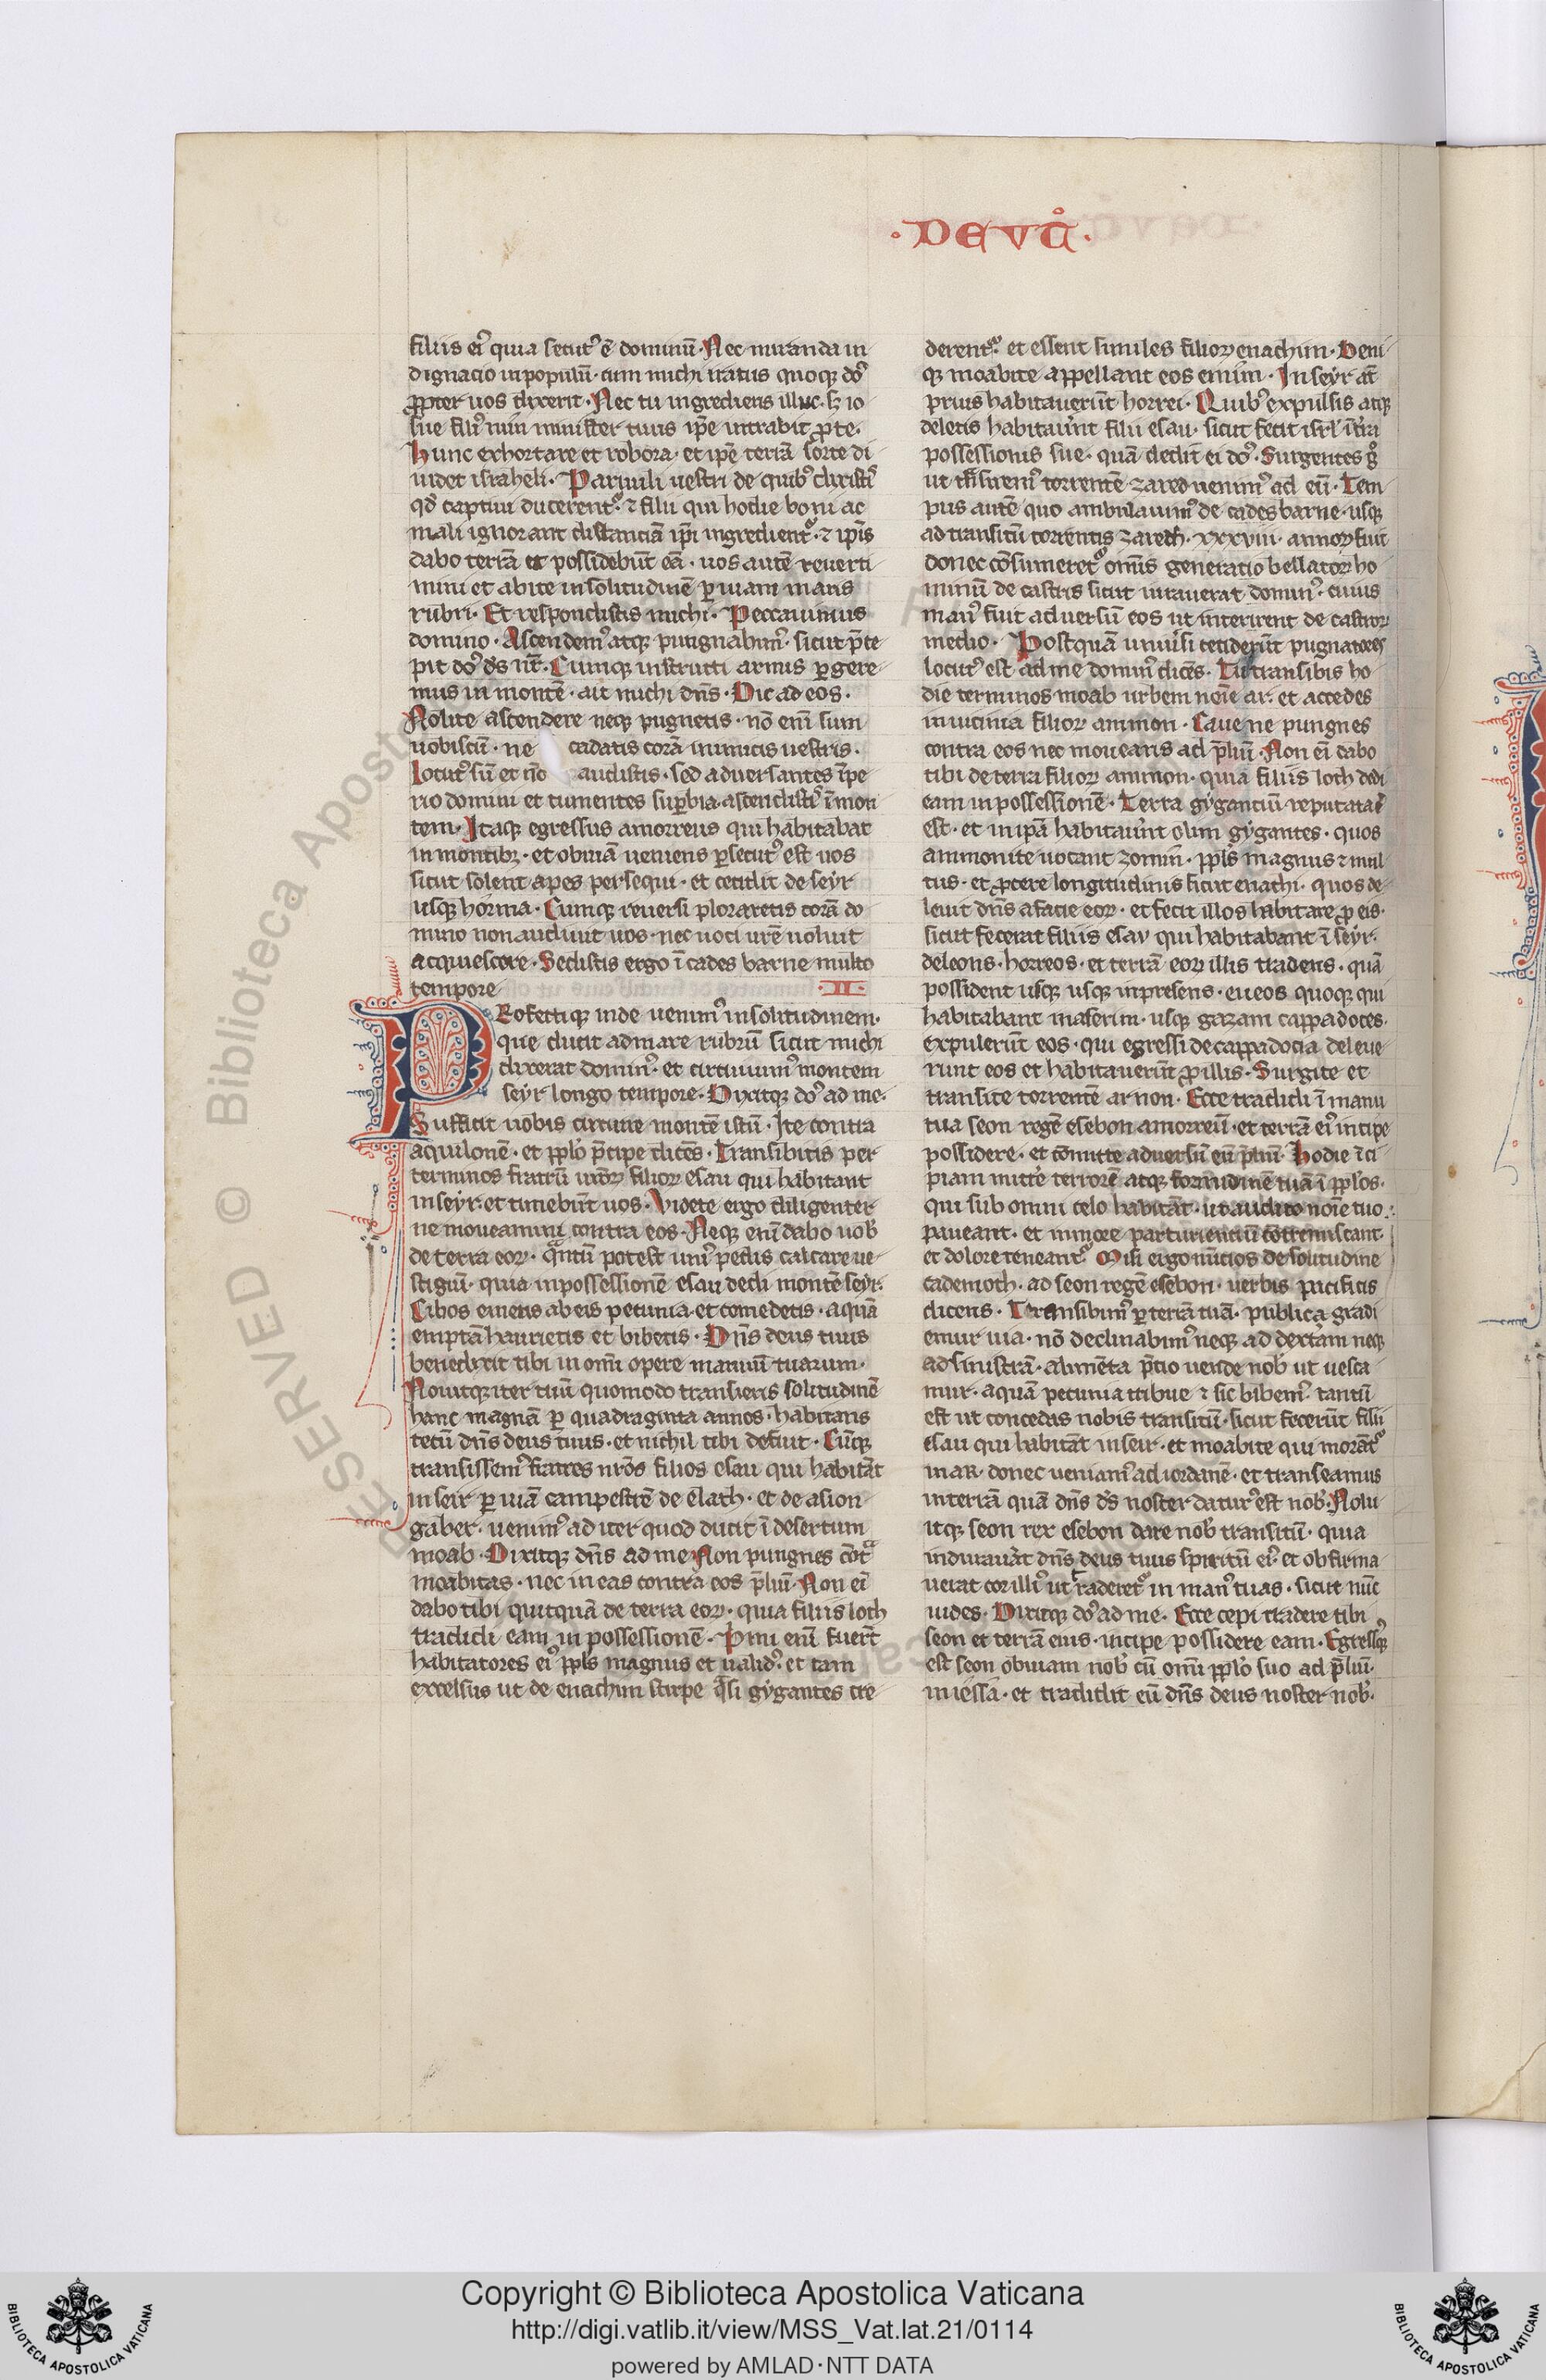 ·DEUT̊·
filiis ei᷒ quia secut᷒ ē dominū· Nec miranda in
dignacio in populū· cum michi iratus quoq̨ do᷒
ꝓpter uos dixerit· Nec tu ingredieris illuc· sꝫ io
sue fili᷒ nun minister tuus ip̄e intrabit ꝓ te·
Hunc exhortare et robora· et ip̄e terrā sorte di
uidet israheli· Paruuli uestri de quib᷒ dixisti᷒
qd̓ captiui ducerent᷒· ⁊ filii qui hodie boni ac
mali ignorant distanciā ip̄i ingredient᷒· ⁊ ip̄is
dabo terrā et possidebūt eā· uos autē reuerti
mini et abite in solitudinē ꝑ uiam maris
rubri· Et respondistis michi· Peccauimus
domino· Ascendem᷒ atq̨ pungnabim᷒· sicut p̄ce
pit do᷒ ds̄ nr̄· Cumq̨ instructi armis ꝑgere
mus in montē· ait michi dn̄s· Dic ad eos·
Nolite ascendere neq̨ pugnetis· nō enī sum
uobiscū· ne cadatis corā inimicis uestris·
Locut᷒ sū et nō audistis· sed aduersantes īpe
rio domini et tumentes suꝑbia ascendisti᷒ ī mon
tem· Itaq̨ egressus amorreus qui habitabat
in montibꝫ· et obuiā ueniens ꝑsecut᷒ est uos
sicut solent apes persequi· et cecidit de seyr
usq̨ horma· Cumq̨ reuersi ploraretis corā do
mino non audiuit uos· nec uoci ur̄e uoluit
acquiescere· Sedistis ergo ī cades barne multo
tempore ·II·
PRofectiq̨ inde uenim᷒ in solitudinem·
que ducit ad mare rubrū sicut michi
dixerat domin᷒· et circuiuim᷒ montem
seyr longo tempore· Dixitq̨ do᷒ ad me·
Sufficit uobis circuire montē istū· Ite contra
aquilonē· et ppl̓o p̄cipe dicēs· Transibitis per
terminos fratrū ur̄oꝝ filioꝝ esau qui habitant
in seyr· et timebūt uos· Videte ergo diligenter
ne moueamini contra eos· Neq̨ enī dabo uob̓
de terra eoꝝ· qᵃntū potest uni᷒ pedis calcare ue
stigiū· quia in possessionē esau dedi montē seyr·
Cibos emetis ab eis pecunia· et comedetis· aquā
emptā haurietis et bibetis· Dn̄s deus tuus
benedixit tibi in omī opere manuū tuarum·
Nouitq̨ iter tuū quomodo transieris solitudinē
hanc magnā ꝑ quadraginta annos· habitans
tecū dn̄s deus tuus· et nichil tibi defuit· Cūq̨
transissem᷒ fratres nr̄os filios esau qui habitāt
in seir ꝑ uiā campestrē de elath· et de asion
gaber· uenim᷒ ad iter quod ducit ī desertum
moab· Dixitq̨ dn̄s ad me· Non pungnes cōtᵃ
moabitas· nec ineas contra eos p̄liū· Non eī
dabo tibi quitquā de terra eoꝝ· quia filiis loth
tradidi eam in possessionē· Pͥmi enī fuer̄t
habitatores ei᷒ ppl̓s magnus et ualid᷒· et tam
excelsus ut de enachim stirpe qᵃsi gygantes cre
derent᷒· et essent similes filioꝝ enachim· Deni
q̨ moabite appellant eos emim· In seyr at̄
prius habitauerūt horrei· Quib᷒ expulsis atq̨
deletis habitau̓nt filii esau· sicut fecit isr̄l ī tr̄a
possessionis sue· quā dedit ei do᷒· Surgentes g̊
ut trāsirem᷒ torrentē zared uenim᷒ ad eū· Tem
pus autē quo ambulauim᷒ de cades barne· usq̨
ad transitū torrentis zareth· xxxviii· annoꝝ fuit
donec cōsumeret᷒ omīs generatio bellatoꝝ ho
minū de castris sicut iurauerat domin᷒· cuius
man᷒ fuit aduersū eos ut interirent de castroꝝ
medio· Postquā uniu̓si ceciderūt pugnatores
locut᷒ est ad me domin᷒ dicēs· Tu transibis ho
die terminos moab urbem noīe ar· et accedes
in uicinia filioꝝ ammon· Caue ne pungnes
contra eos nec mouearis ad p̄liū· Non eī dabo
tibi de terra filioꝝ ammon· quia filiis loth dedi
eam in possessionē· Terra gygantiū reputata
est· et in ip̄a habitau̓nt olim gygantes· quos
ammonite uocant zomim̄· ppl̓s magnus ⁊ mul
tus· et ꝓcere longitudinis sicut enachi· quos de
leuit dn̄s a facie eoꝝ· et fecit illos habitare ꝓ eis·
sicut fecerat filiis esau qui habitabant ī seyr·
delens· horreos· et terrā eoꝝ illis tradens· quā
possident usq̨ usq̨ in presens· eueos quoq̨ qui
habitabant in aserim· usq̨ gazam cappadoces·
expulerūt eos· qui egressi de cappadocia deleue
runt eos et habitauerūt ꝓ illis· Surgite et
transite torrentē arnon· Ecce tradidi ī manu
tua seon regē esebon amorreū· et terrā ei᷒ incipe
possidere· et cōmitte aduersū eū p̄liū· Hodie īci
piam mitt̓e terrorē atq̨ formidinē tuā ī ppl̓os·
qui sub omni celo habitāt· ut audito noīe tuo
paueant· et in more parturientiū cōtremiscant·
et dolore teneant᷒· Misi ergo nūcios de solitudine
cademoth· ad seon regē esebon· uerbis pacificis
dicens· Transibim᷒ ꝑ terrā tuā· publica gradi
emur uia· nō declinabim᷒ neq̨ ad dext̓am neq̨
ad sinistrā· alimēta p̄cio uende nob̓ ut uesca
mur· aquā pecunia tribue ⁊ sic bibem᷒ tantū
est ut concedas nobis transitū· sicut fecerūt filii
esau qui habitāt in seir· et moabite qui morāt᷒
in aR· donec ueniam᷒ ad iordanē· et transeamus
in terrā quā dn̄s ds̄ noster datur᷒ est nob̓· Nolu
itq̨ seon rex esebon dare nob̓ transitū· quia
indurau̓at dn̄s deus tuus spiritū ei᷒· et obfirma
uerat cor illi᷒ ut traderet᷒ in man᷒ tuas· sicut nūc
uides· Dixitq̨ do᷒ ad me· Ecce cepi tradere tibi
seon et terrā eius· incipe possidere eam· Egressq̨᷒
est seon obuiam nob̓ cū omī ppl̓o suo ad p̄liū·
in iessa· et tradidit eū dn̄s deus noster nob̓·
Copyright © Biblioteca Apostolica Vaticana
http://digi.vatlib.it/view/MSS_Vat.lat.21/0114
powered by AMLAD·NTT DATA
BIBLIOTECA APOSTOLICA VATICANA
BIBLIOTECA APOSTOLICA VATICANA
RESERVED © Biblioteca Apostolica Vaticana